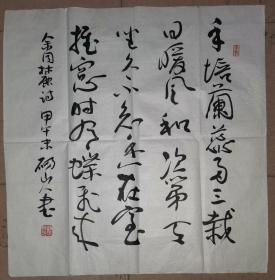 手培蘭蕊两三栽
日暖風和次第天
坐久不知香在室
推窗时有蝶飞来
余同麓诗 甲午末 山人书